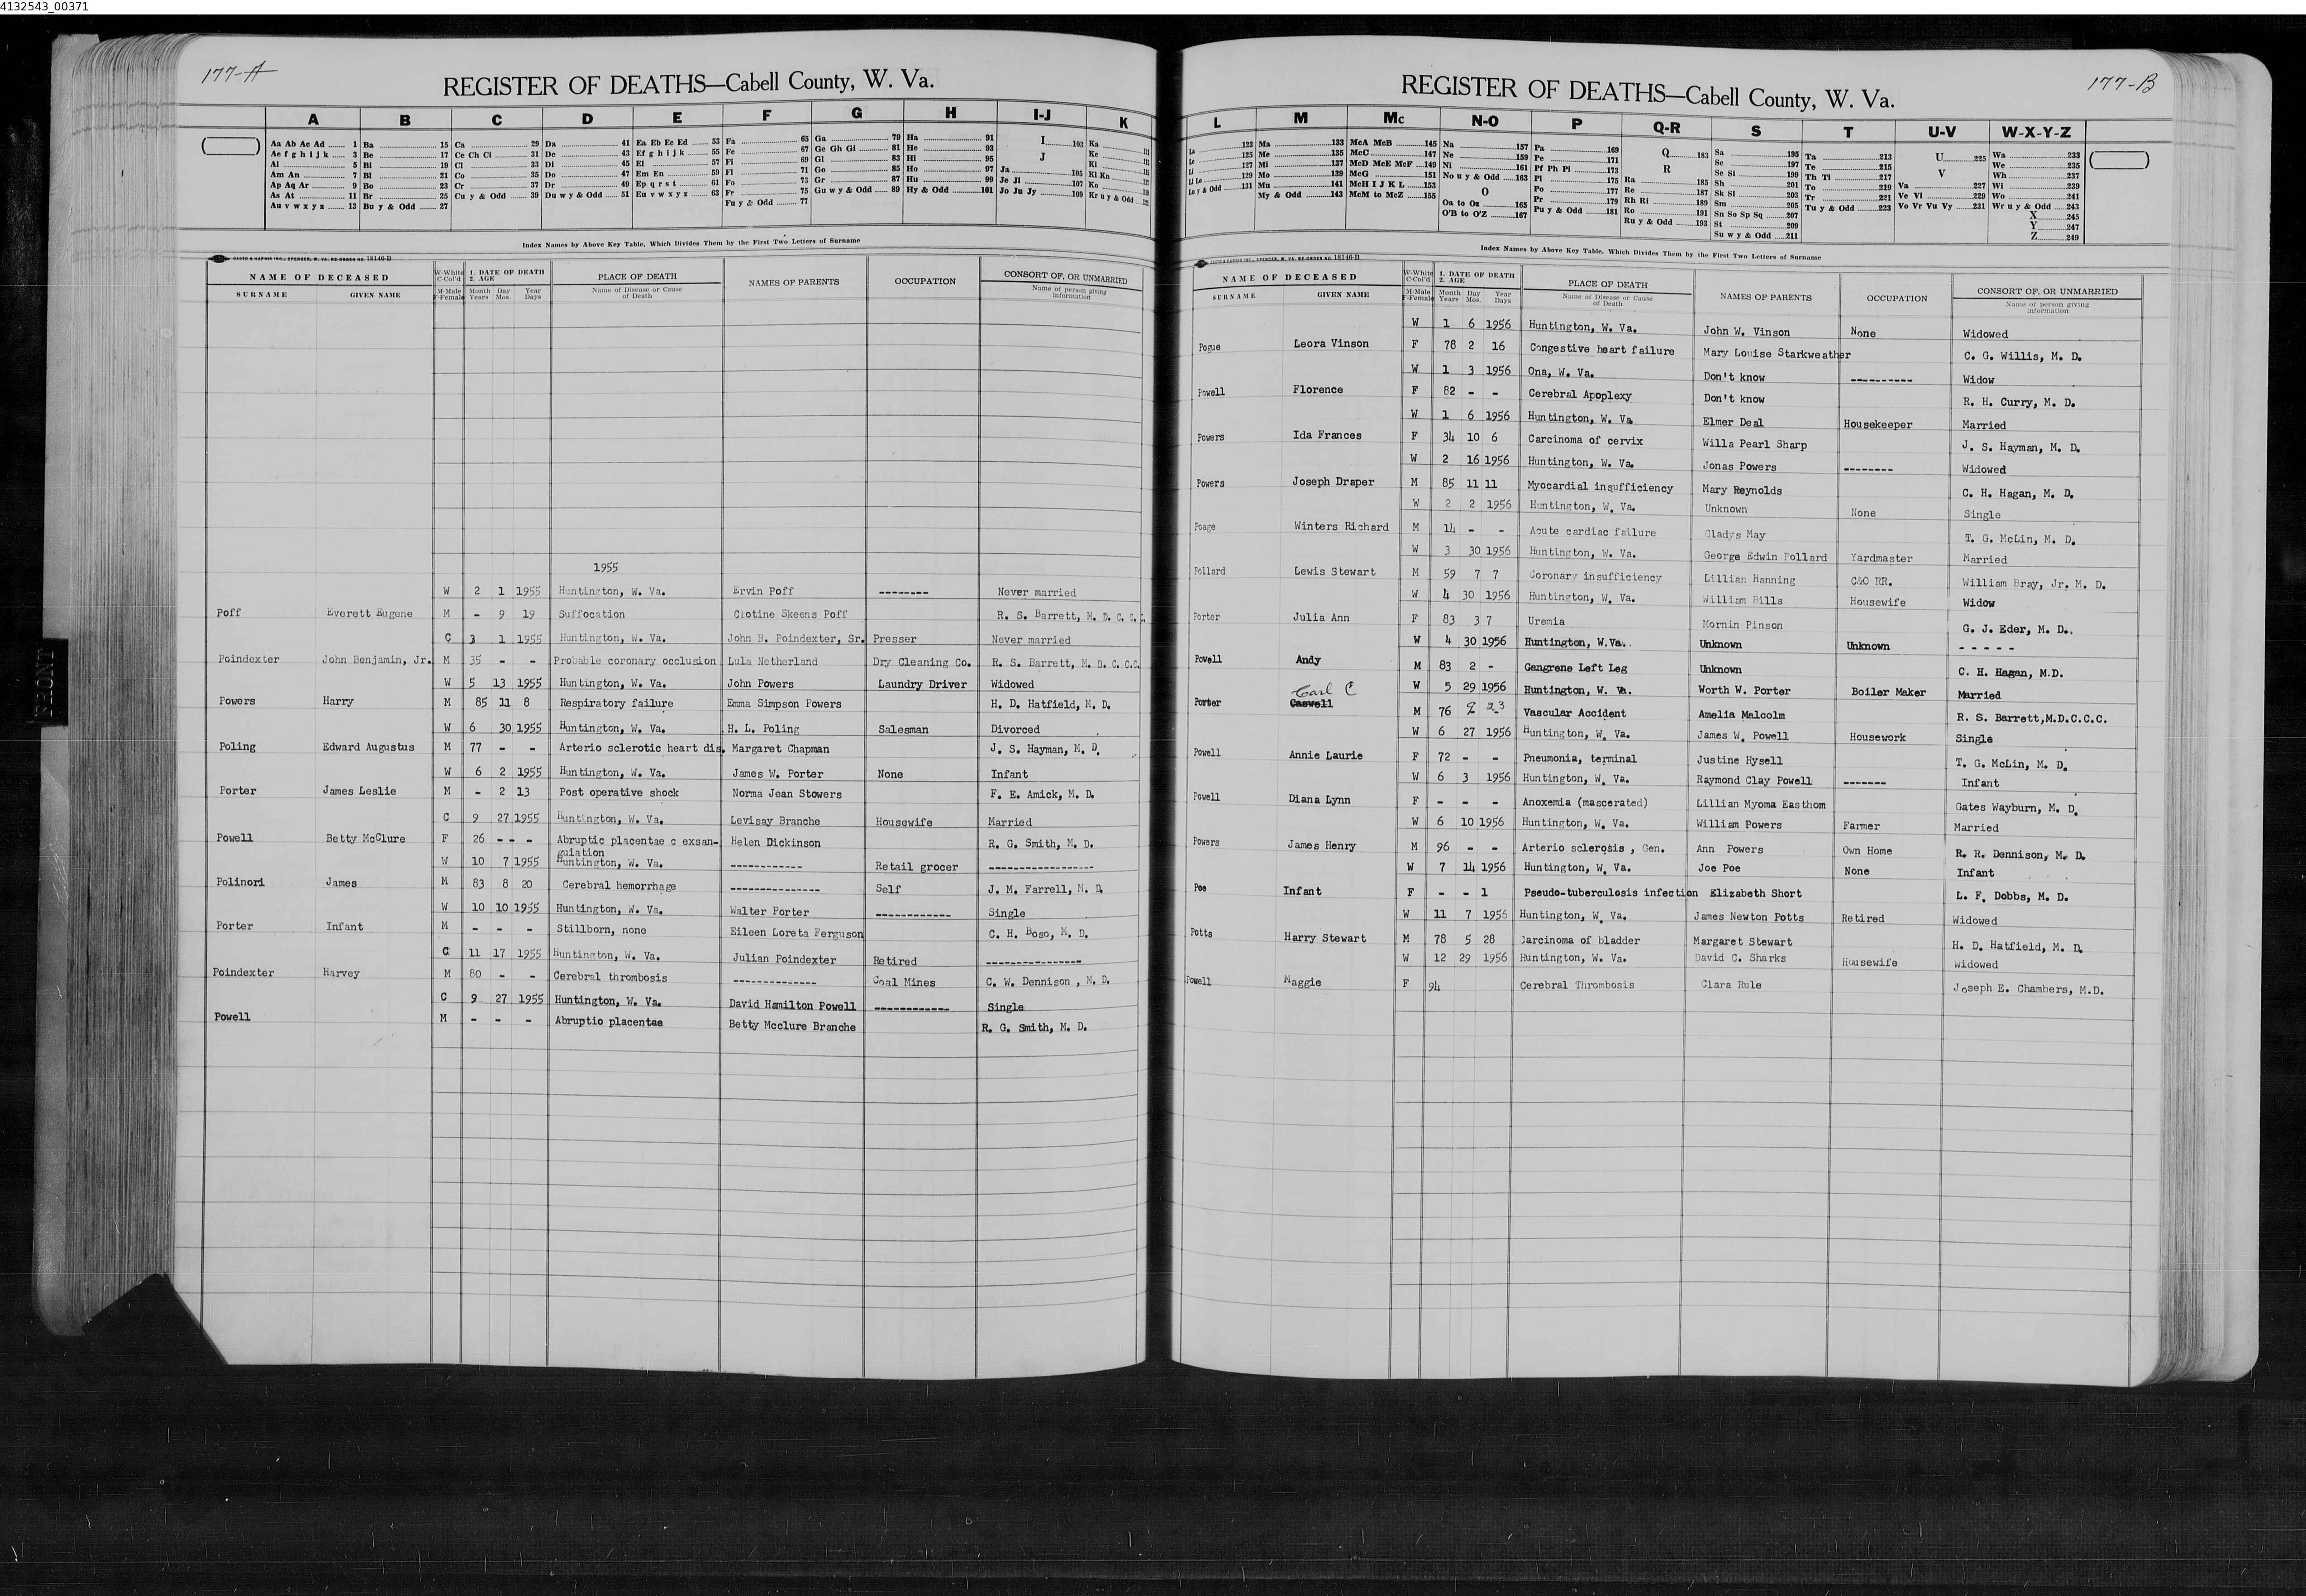 4132543_00371
177-A
REGISTER OF DEATHS—Cabell County, W. Va.
A B C D E F G H I-J K
Aa Ab Ac Ad 1 Ba 15 Ca 29 Da 41 Ea Eb Ec Ed 53 Fa 65 Ga 79 Ha 91 I 103 Ka
Ae f g h i j k 3 Be 17 Ce Ch Ci 31 De 43 Ef g h i j k 55 Fe 67 Ge Gh Gi 81 He 93 J Ke
Al 5 Bi 19 Cl 33 Di 45 El 57 Fi 69 Gl 83 Hi 95 Ja 105 Ki
Am An 7 Bl 21 Co 35 Do 47 Em En 59 Fl 71 Go 85 Ho 97 Je Ji 107 Kl Kn
Ap Aq Ar 9 Bo 23 Cr 37 Dr 49 Ep q r s t 61 Fo 73 Gr 87 Hu 99 Jo Ju Jy 109 Ko
As At 11 Br 25 Cu y & Odd 39 Du w y & Odd 51 Eu v w x y z 63 Fr 75 Gu w y & Odd 89 Hy & Odd 101 Kr u y & Odd
Au v w x y z 13 Bu y & Odd 27 Fu y & Odd 77
Index Names by Above Key Table, Which Divides Them by the First Two Letters of Surname
CASTO & HARRIS INC., SPENCER, W. VA. RE-ORDER NO. 18146-B
NAME OF DECEASED W-White C-Col'd 1. DATE OF DEATH 2. AGE PLACE OF DEATH NAMES OF PARENTS OCCUPATION CONSORT OF, OR UNMARRIED
SURNAME GIVEN NAME M-Male F-Female Month Years Day Mos. Year Days Name of Disease or Cause of Death Name of person giving information
1955
W 2 1 1955 Huntington, W. Va. Ervin Poff -------- Never married
Poff Everett Eugene M - 9 19 Suffocation Clotine Skeens Poff R. S. Barrett, M. D. C. C. C.
C 3 1 1955 Huntington, W. Va. John B. Poindexter, Sr. Presser Never married
Poindexter John Benjamin, Jr. M 35 - - Probable coronary occlusion Lula Netherland Dry Cleaning Co. R. S. Barrett, M. D. C. C.C.
W 5 13 1955 Huntington, W. Va. John Powers Laundry Driver Widowed
Powers Harry M 85 11 8 Respiratory failure Emma Simpson Powers H. D. Hatfield, M. D.
W 6 30 1955 Huntington, W. Va. H. L. Poling Salesman Divorced
Poling Edward Augustus M 77 - - Arterio sclerotic heart dis. Margaret Chapman J. S. Hayman, M. D.
W 6 2 1955 Huntington, W. Va. James W. Porter None Infant
Porter James Leslie M - 2 13 Post operative shock Norma Jean Stowers F. E. Amick, M. D.
C 9 27 1955 Huntington, W. Va. Levisay Branche Housewife Married
Powell Betty McClure F 26 - - - Abruptic placentae c exsan- Helen Dickinson R. G. Smith, M. D.
guiation
W 10 7 1955 Huntington, W. Va. ------------ Retail grocer -----------------
Polinori James M 83 8 20 Cerebral hemorrhage --------------- Self J. M. Farrell, M. D.
W 10 10 1955 Huntington, W. Va. Walter Porter ------------ Single
Porter Infant M - - - Stillborn, none Eileen Loreta Ferguson C. H. Boso, M. D.
C 11 17 1955 Huntington, W. Va. Julian Poindexter Retired ----------------
Poindexter Harvey M 80 - - Cerebral thrombosis -------------- Coal Mines C. W. Dennison, M. D.
C 9 27 1955 Huntington, W. Va. David Hamilton Powell ------------ Single
Powell M - - - Abruptio placentae Betty Mcclure Branche R. G. Smith, M. D.
177-B
REGISTER OF DEATHS—Cabell County, W. Va.
L M Mc N-O P Q-R S T U-V W-X-Y-Z
La 123 Ma 133 McA McB 145 Na 157 Pa 169 Q 183 Sa 195 Ta 213 U 225 Wa 233
Le 125 Me 135 McC 147 Ne 159 Pe 171 R Sc 197 Te 215 V We 235
Li 127 Mi 137 McD McE McF 149 Ni 161 Pf Ph Pi 173 Ra 185 Se Si 199 Th Ti 217 Va 227 Wh 237
Ll Lo 129 Mo 139 McG 151 No u y & Odd 163 Pl 175 Re 187 Sh 201 To 219 Ve Vi 229 Wi 239
Lu y & Odd 131 Mu 141 McH I J K L 153 O Po 177 Rh Ri 189 Sk Sl 203 Tr 221 Vo Vr Vu Vy 231 Wo 241
My & Odd 143 McM to McZ 155 Oa to Oz 165 Pr 179 Ro 191 Sm 205 Tu y & Odd 223 Wr u y & Odd 243
O'B to O'Z 167 Pu y & Odd 181 Ru y & Odd 193 Sn So Sp Sq 207 X 245
St 209 Y 247
Su w y & Odd 211 Z 249
Index Names by Above Key Table, Which Divides Them by the First Two Letters of Surname
CASTO & HARRIS INC., SPENCER, W. VA. RE-ORDER NO. 18146-B
NAME OF DECEASED W-White C-Col'd 1. DATE OF DEATH 2. AGE PLACE OF DEATH NAMES OF PARENTS OCCUPATION CONSORT OF, OR UNMARRIED
SURNAME GIVEN NAME M-Male F-Female Month Years Day Mos. Year Days Name of Disease or Cause of Death Name of person giving information
W 1 6 1956 Huntington, W. Va. John W. Vinson None Widowed
Pogue Leora Vinson F 78 2 16 Congestive heart failure Mary Louise Starkweather C. G. Willis, M. D.
W 1 3 1956 Ona, W. Va. Don't know ---------- Widow
Powell Florence F 82 - - Cerebral Apoplexy Don't know R. H. Curry, M. D.
W 1 6 1956 Huntington, W. Va. Elmer Deal Housekeeper Married
Powers Ida Frances F 34 10 6 Carcinoma of cervix Willa Pearl Sharp J. S. Hayman, M. D.
W 2 16 1956 Huntington, W. Va. Jonas Powers -------- Widowed
Powers Joseph Draper M 85 11 11 Myocardial insufficiency Mary Reynolds C. H. Hagan, M. D.
W 2 2 1956 Huntington, W. Va. Unknown None Single
Poage Winters Richard M 14 - - Acute cardiac failure Gladys May T. G. McLin, M. D.
W 3 30 1956 Huntington, W. Va. George Edwin Pollard Yardmaster Married
Pollard Lewis Stewart M 59 7 7 Coronary insufficiency Lillian Hanning C&O RR. William Bray, Jr. M. D.
W 4 30 1956 Huntington, W. Va. William Bills Housewife Widow
Porter Julia Ann F 83 3 7 Uremia Mornin Pinson G. J. Eder, M. D..
W 4 30 1956 Huntington, W.Va.. Unknown Unknown - - - - -
Powell Andy M 83 2 - Gangrene Left Leg Unknown C. H. Hagan, M.D.
Carl C W 5 29 1956 Huntington, W. Va. Worth W. Porter Boiler Maker Married
Porter Caswell M 76 2 23 Vascular Accident Amelia Malcolm R. S. Barrett,M.D.C.C.C.
W 6 27 1956 Huntington, W. Va. James W. Powell Housework Single
Powell Annie Laurie F 72 - - Pneumonia, terminal Justine Hysell T. G. McLin, M. D.
W 6 3 1956 Huntington, W. Va. Raymond Clay Powell ------- Infant
Powell Diana Lynn F - - - Anoxemia (mascerated) Lillian Myoma Easthom Gates Wayburn, M. D.
W 6 10 1956 Huntington, W. Va. William Powers Farmer Married
Powers James Henry M 96 - - Arterio sclerosis , Gen. Ann Powers Own Home R. R. Dennison, M. D.
W 7 14 1956 Huntington, W. Va. Joe Poe None Infant
Poe Infant F - - 1 Pseudo-tuberculosis infection Elizabeth Short L. F. Dobbs, M. D.
W 11 7 1956 Huntington, W. Va. James Newton Potts Retired Widowed
Potts Harry Stewart M 78 5 28 Carcinoma of bladder Margaret Stewart H. D. Hatfield, M. D.
W 12 29 1956 Huntington, W. Va. David C. Sharks Housewife Widowed
Powell Maggie F 94 Cerebral Thrombosis Clara Rule Joseph E. Chambers, M.D.
FRONT